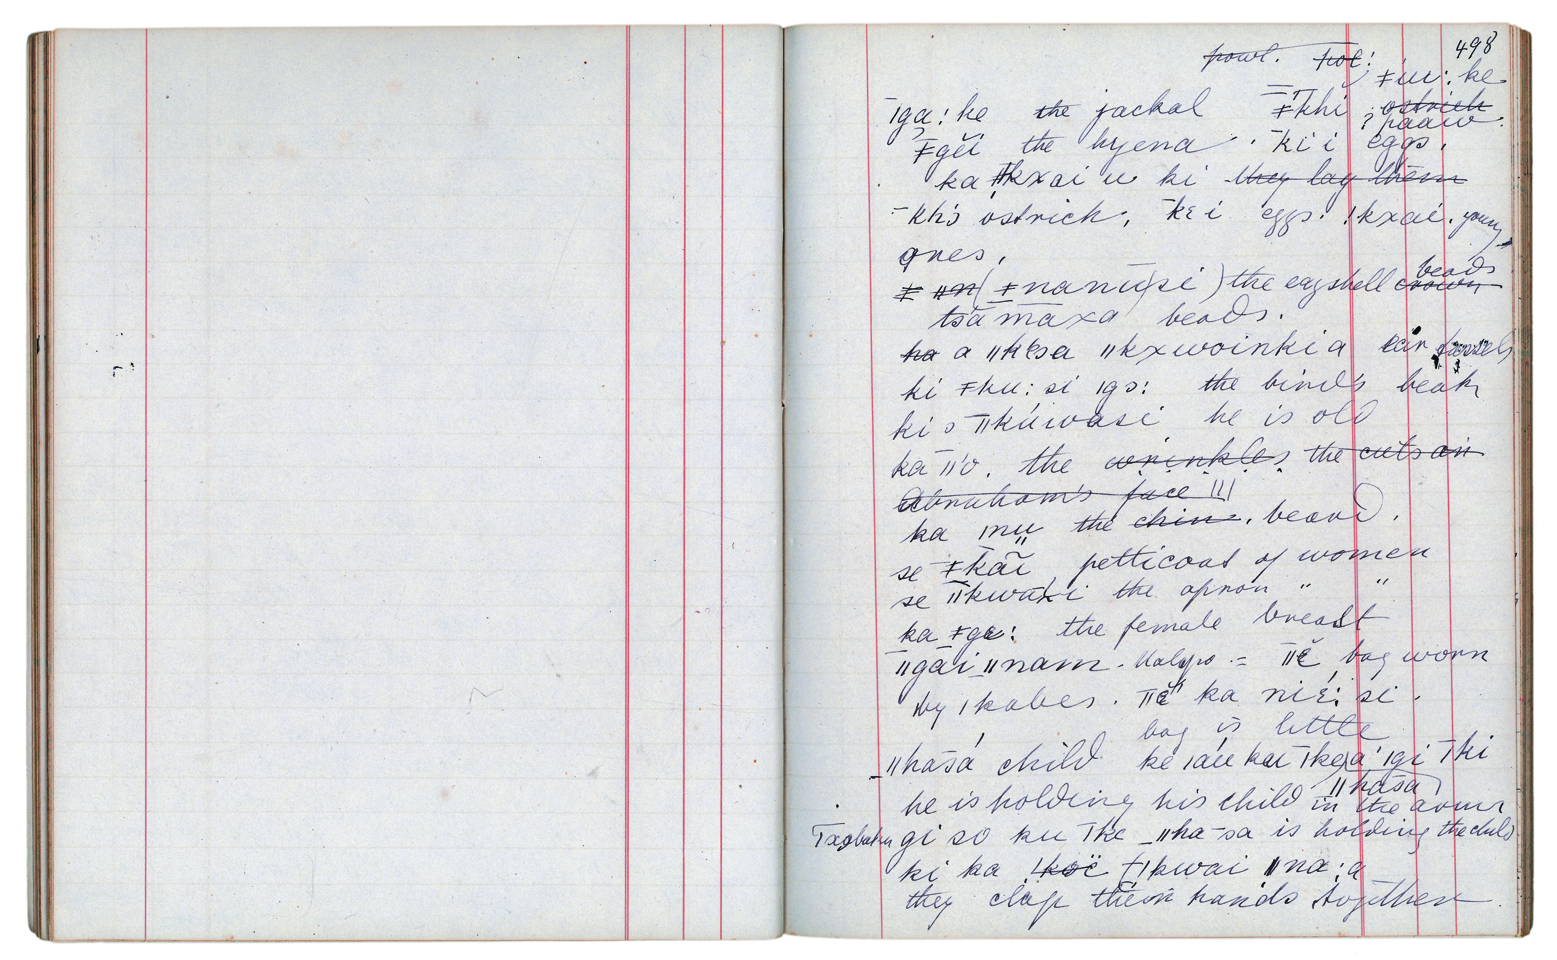 498
powl. pot: ǂuu: ke
ǀga: ke the jackal ǂkhi ostrich paauw.
ǂgĕi the hyena. ki i eggs.
ka ǁkxai u ki they lay them
khɔ ostrich, kɛ i eggs. ǃkxai. young
ones.
ǂ ǁn (ǂnanu si) the eggshell crown beads
tsa maxa beads.
ha a ǁkɛsa ǁkxwoinkia ear
ki ǂku: si ǀgɔ: the bird's beak
ki ɔ ǁkúwasi he is old
ka ǁ'o. the wrinkles the cuts on
Abraham's face ǀǀǀ
ka ǀnu the chin. beard.
se ǂkãi petticoat of women
se ǁkwaxi the apron " "
ka ǂga: the female breast
ǁgãi ǁnam. = ǁĕ bag worn
by ǀkabes. ǁĕ ka niɛ: si.
bag is little
ǁhasá child ke ǀáu kai ǀkɛ a ǀgi ki
ǁhasa
he is holding his child in the arms
Txobaku gi so ku ǀke ǁha-sa is holding the child
ki ka ǃkoë ǀkwai ǁna: a
they clap their hands together